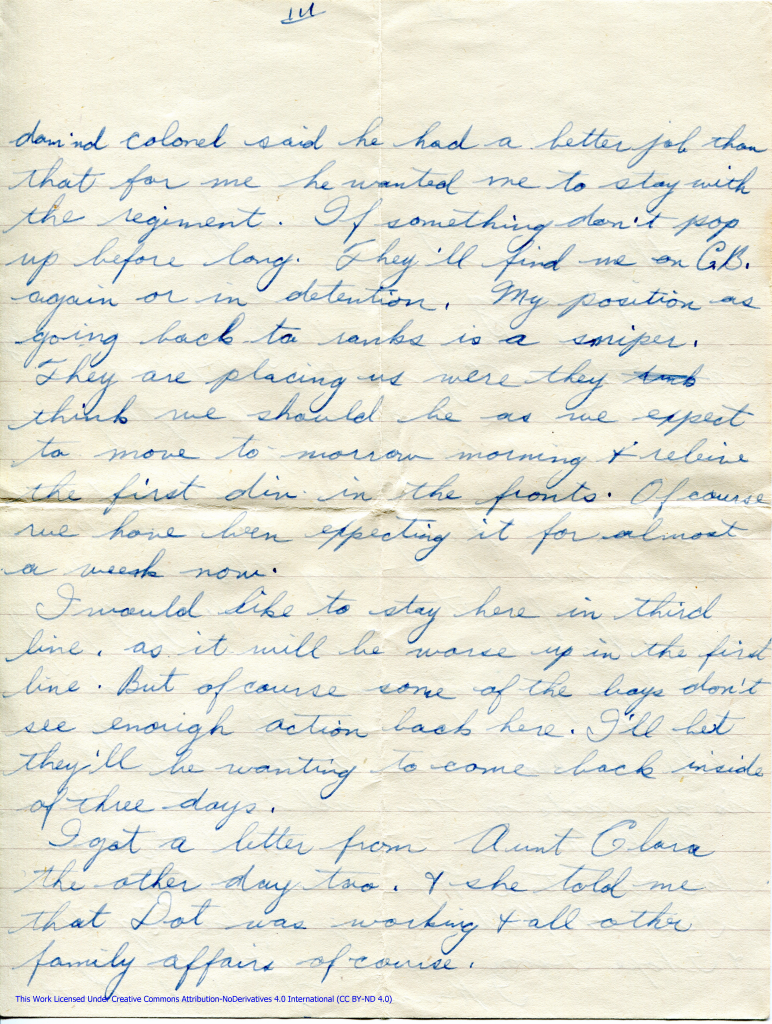 III
dam'nd colonel said he had a better job than
that for me he wanted me to stay with
the regiment. If something don't pop
up before long. They'll find me on C.B.
again or in detention. My position as
going back to ranks is a sniper.
They are placing us were they
think we should be as we expect
to move to morrow morning & releive
the first div. in the fronts. Of course
we have been expecting it for almost
a week now.
I would like to stay here in third
line, as it will be worse up in the first
line. But of course some of the boys don't
see enough action back here. I'll bet
they'll be wanting to come back inside
of three days.
I got a letter from Aunt Clara
the other day two. & she told me
that Dot was working & all other
family affairs of course.
This Work Licensed Under Creative Commons Attribution-NoDerivatives 4.0 International (CC BY-ND 4.0)